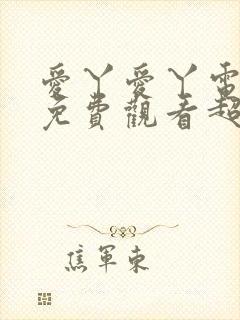 愛丫愛丫電
免費觀看超
焦軍東